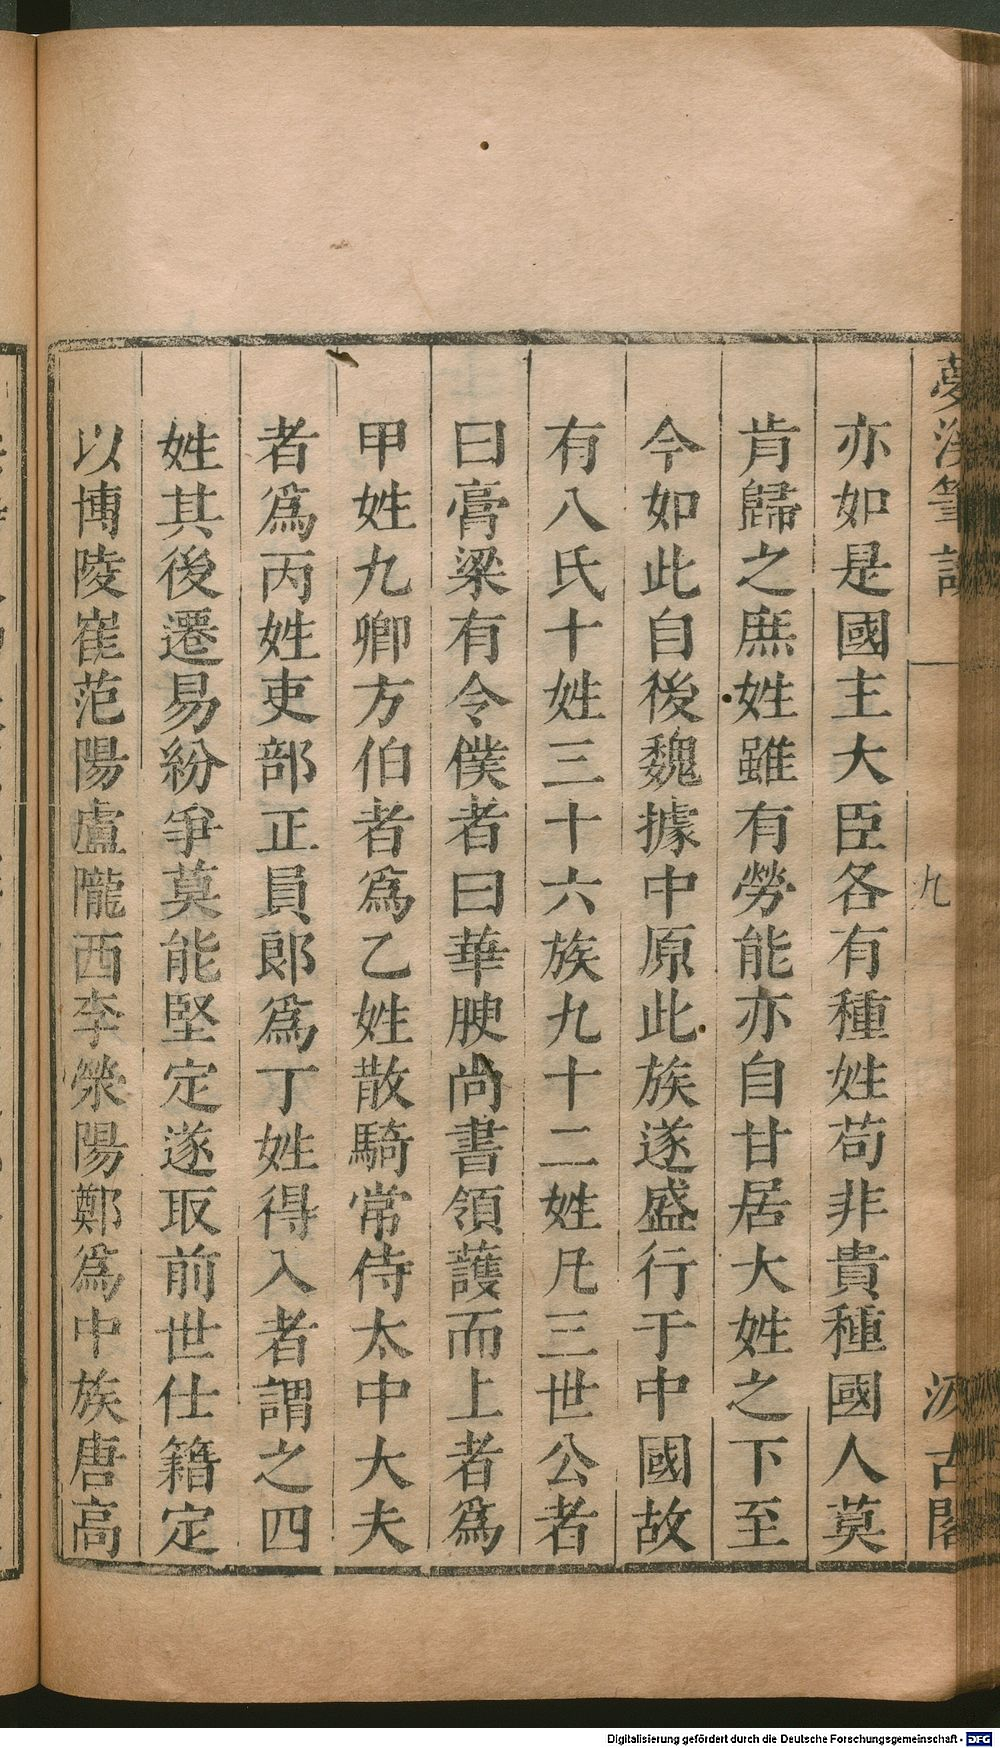 夢溪筆談
九
汲古閣
亦如是國主大臣各有種姓苟非貴種國人莫
肯歸之庶姓雖有勞能亦自甘居大姓之下至
今如此自後魏據中原此族遂盛行于中國故
有八氏十姓三十六族九十二姓凡三世公者
曰膏粱有令僕者曰華腴尚書領護而上者爲
甲姓九卿方伯者爲乙姓散騎常侍太中大夫
者爲丙姓吏部正員郎爲丁姓得入者謂之四
姓其後遷易紛爭莫能堅定遂取前世仕籍定
以博陵崔范陽盧隴西李滎陽鄭爲甲族唐高
Digitalisierung gefördert durch die Deutsche Forschungsgemeinschaft - DFG